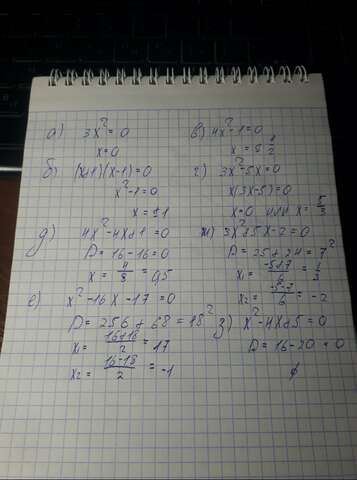 а) 3x² = 0
x = 0
б) (x+1)(x-1) = 0
x² - 1 = 0
x = ±1
д) 4x² - 4x + 1 = 0
D = 16 - 16 = 0
x = 4/8 = 0,5
е) x² - 16x - 17 = 0
D = 256 + 68 = 18²
x₁ = (16+18)/2 = 17
x₂ = (16-18)/2 = -1
в) 4x² - 1 = 0
x = ± 1/2
г) 3x² - 5x = 0
x(3x-5) = 0
x = 0 или x = 5/3
ж) 3x² + 5x - 2 = 0
D = 25 + 24 = 7²
x₁ = (-5+7)/6 = 1/3
x₂ = (-5-7)/6 = -2
з) x² - 4x + 5 = 0
D = 16 - 20 < 0
∅